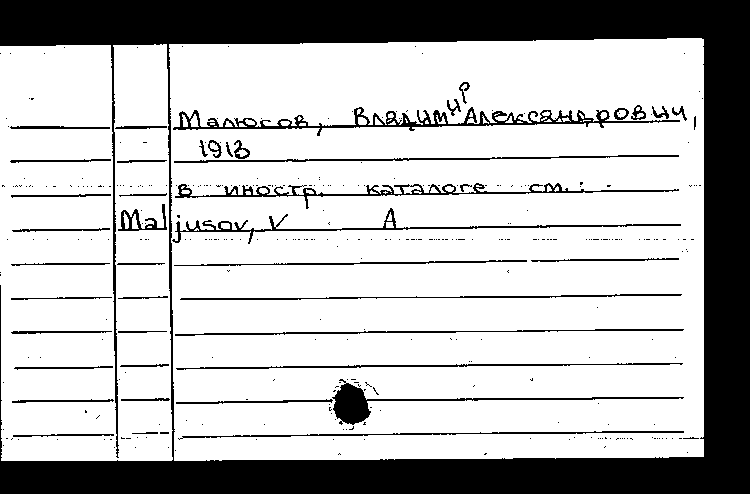 Малюсов, Владимир Александрович,
1913
в иностр. каталоге см.:
Maljusov, V A